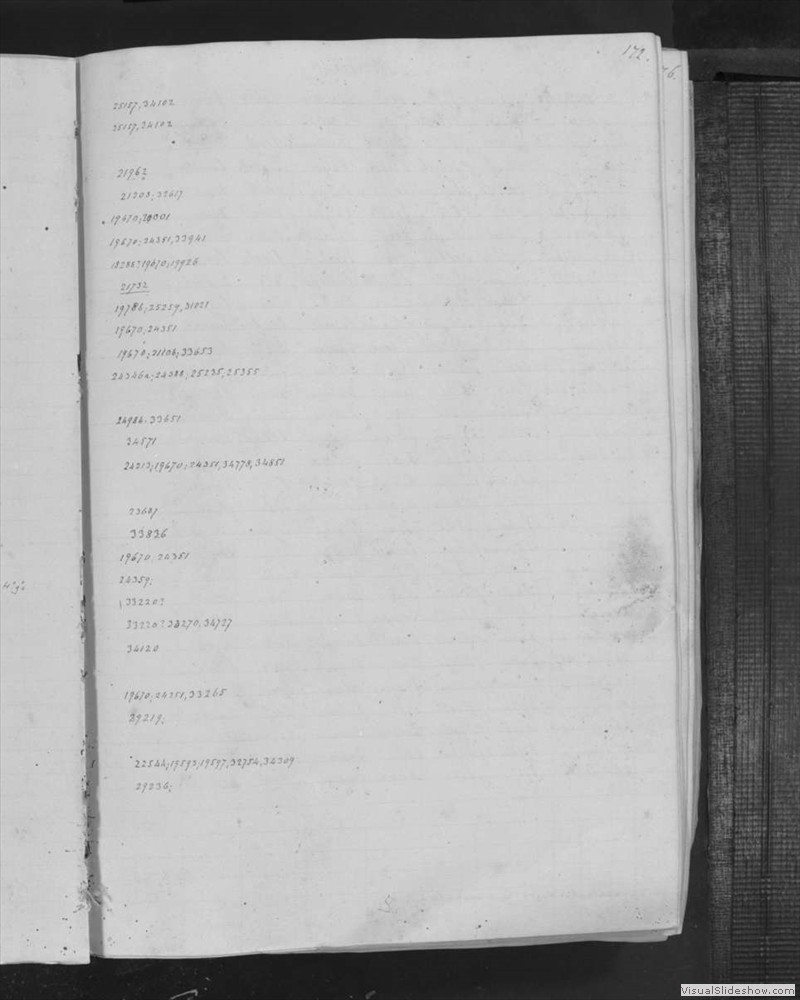 172.
76.
25187,34102
25187,34102
21962
21308;33617
19670;20301
19670;24351,33941
18288?19670;19926
21732
19786;25259,31021
19670,24351
19670;21106;33653
24346a;24388;25235,25355
24986.33651
34571
24213;19670;24351,34778,34851
23607
33836
19670.24351
24359;
33220?
33220?33270,34727
34120
19670;24351,33265
29219;
22544;19593;19597,32754,34309
29236;
VisualSlideshow.com